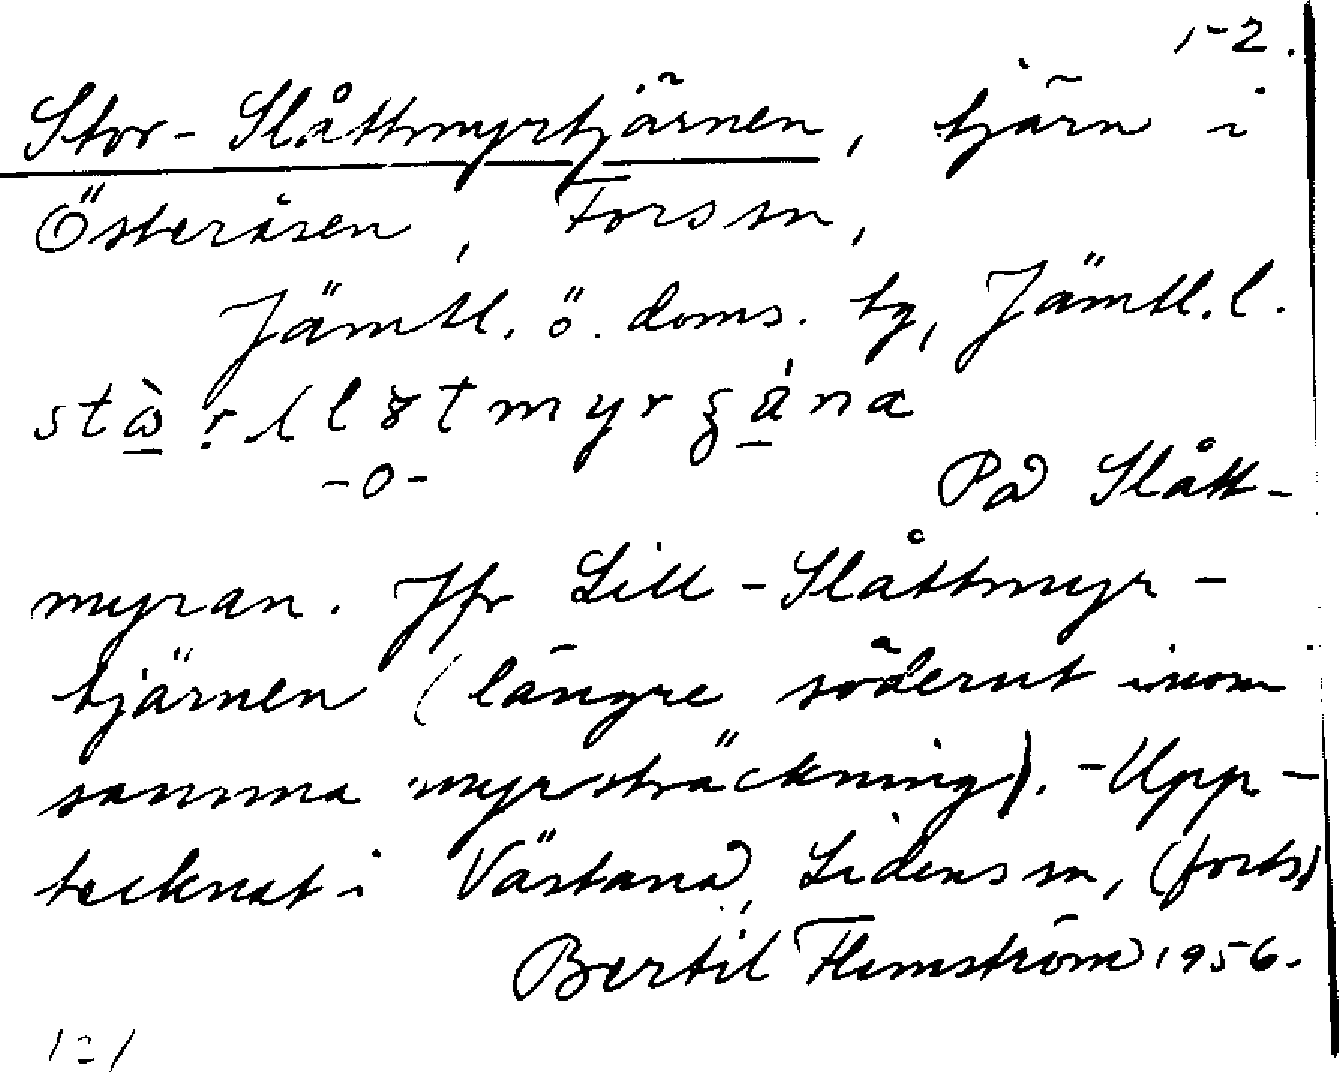 1-2.
Stor-Slåttmyrtjärnen, tjärn i
Österåsen, Fors sn,
Jämtl. ö. doms. tg, Jämtl. l.
-o-
På Slått-
myran. Jfr Lill-Slåttmyr-
tjärnen (längre söderut inom
samma myrsträckning). - Upp-
tecknat i Västanå, Lidens sn, (forts)
Bertil Flemström 1956.